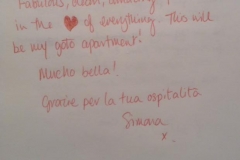 Fabulous, clean, amazing,
in the ❤ of everything. This will
be my goto apartment!
Mucho bella!
Grazie per la tua ospitalita
Simona
x.